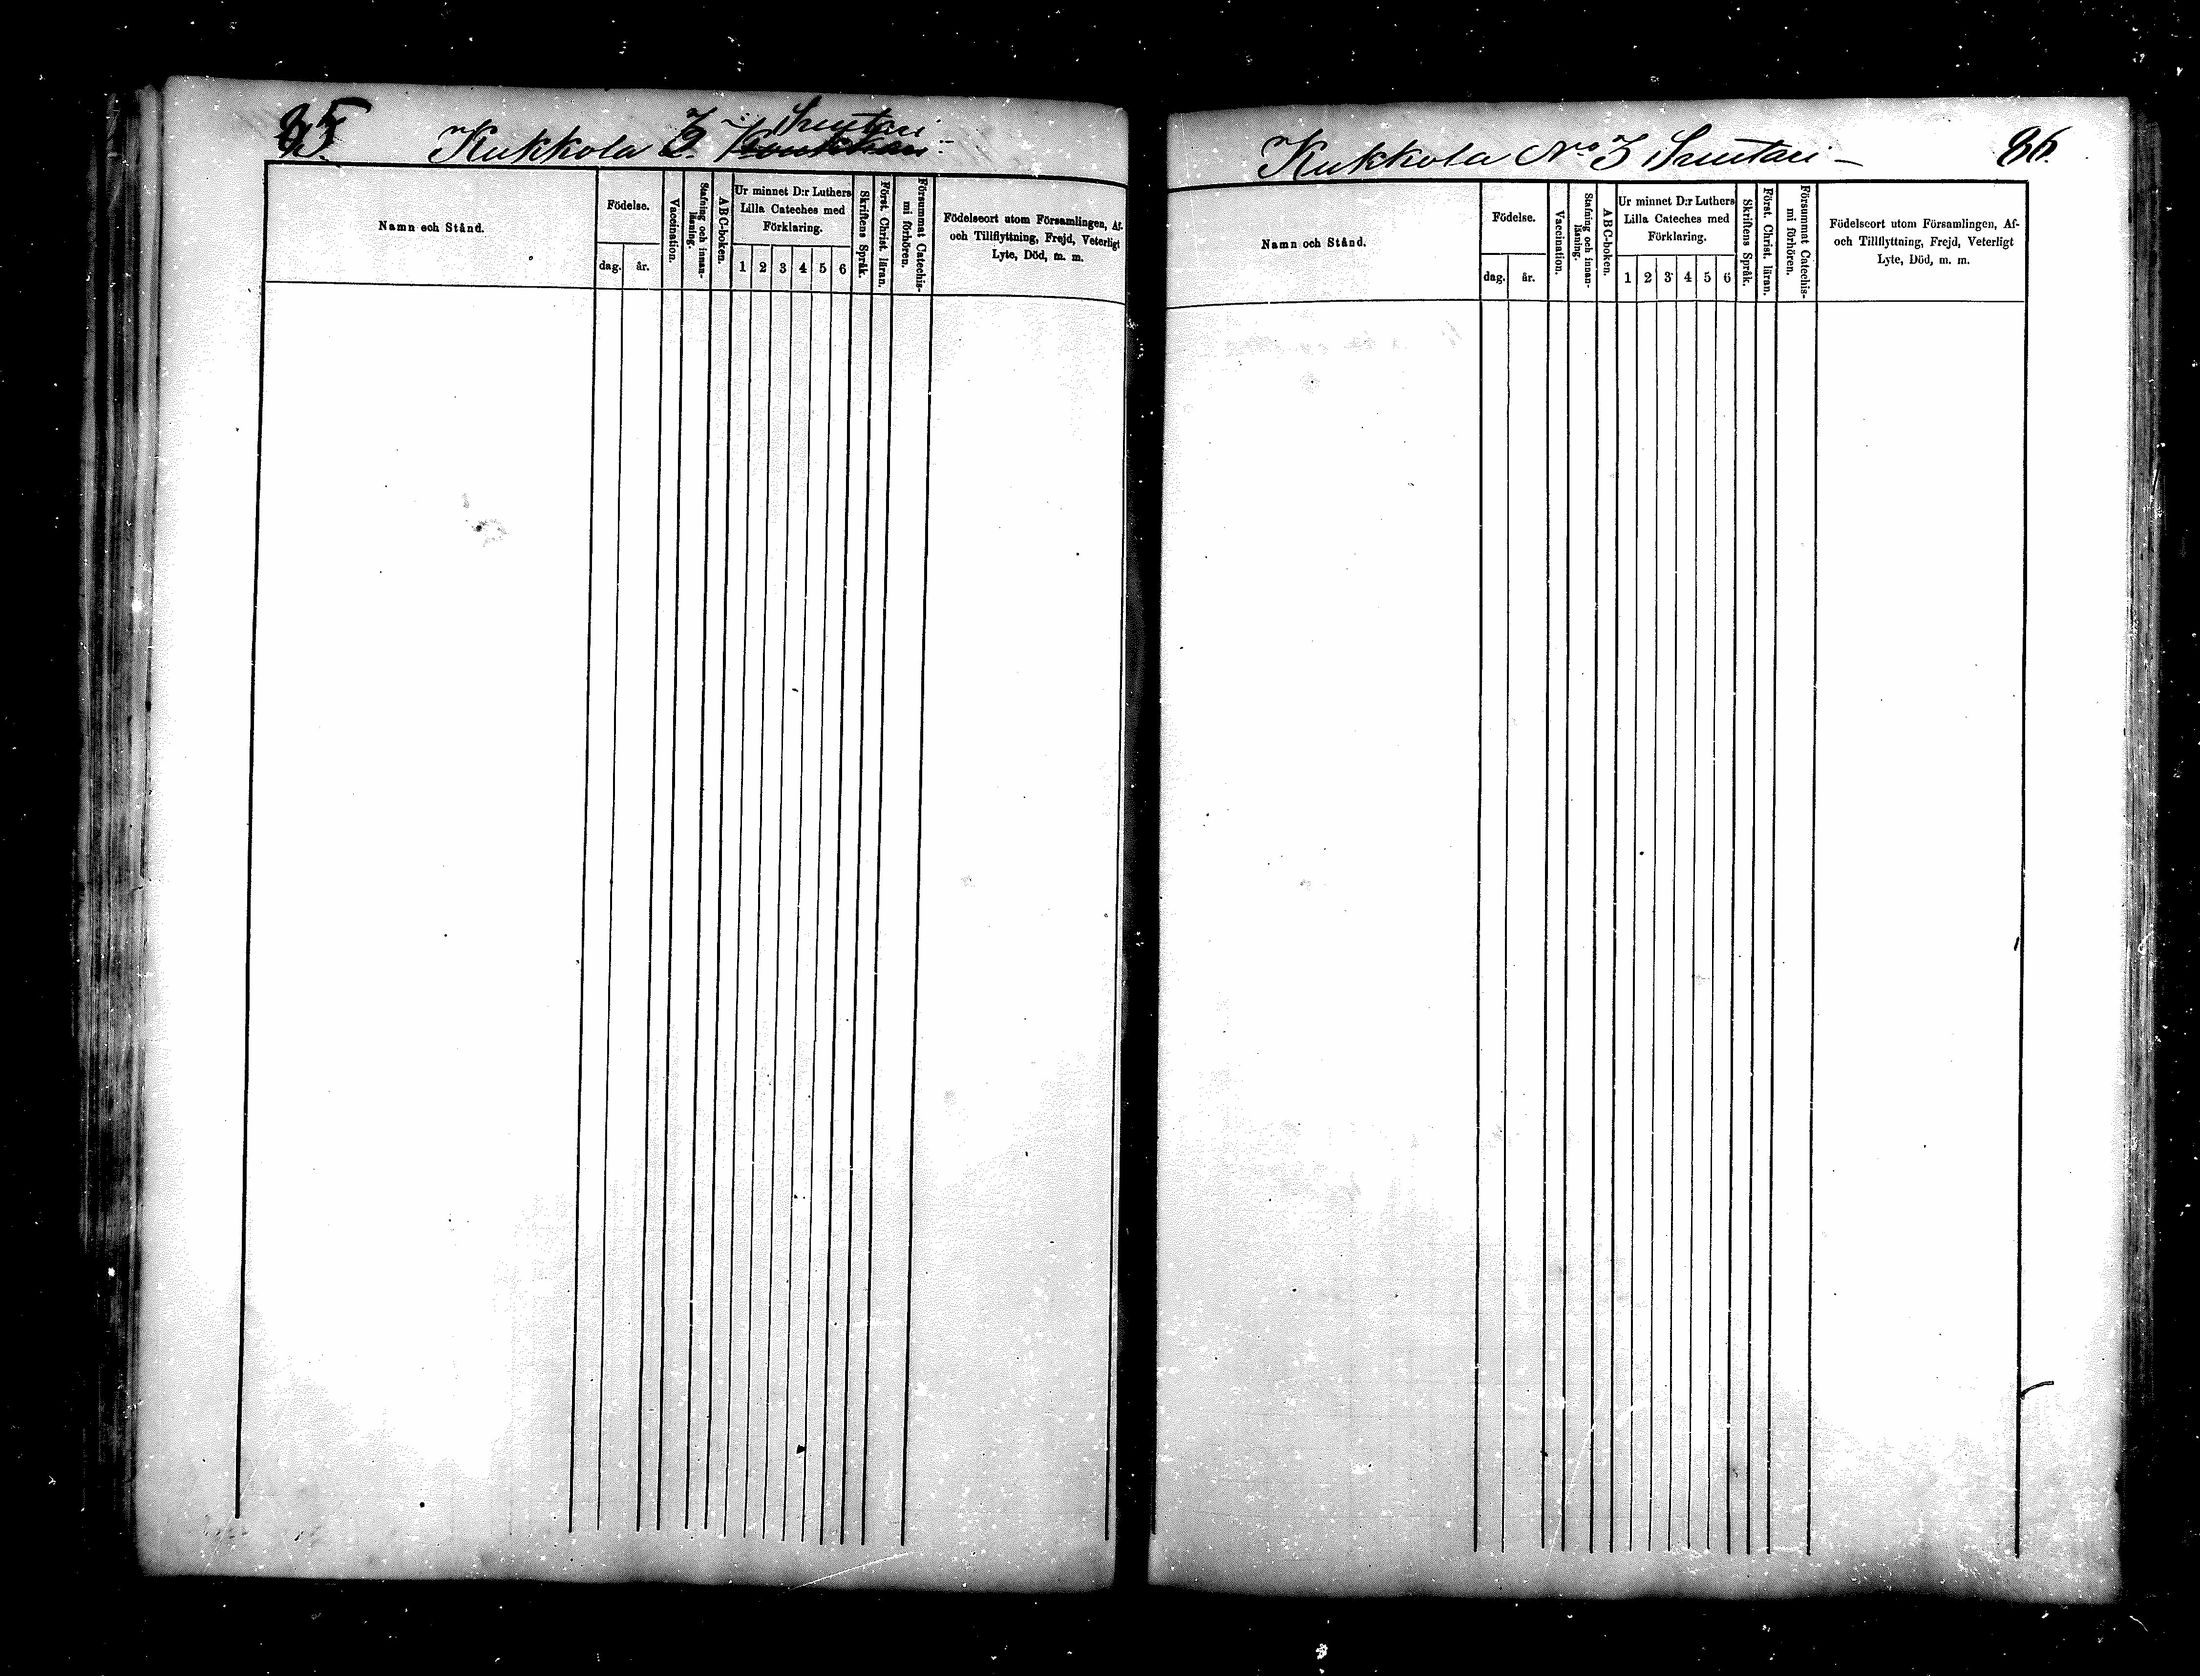 85
Kukkola 3 Sruutari
Namn och Stånd.
Födelse.
dag.
år.
Vaccination.
Stafning och innan-
läsning.
ABC-boken.
Ur minnet D:r Luthers
Lilla Cateches med
Förklaring.
1 2 3 4 5 6
Skriftens Språk.
Först. Christ. läran.
Försummat Catechis-
mi förhören.
Födelseort utom Församlingen, Af-
och Tillflyttning, Frejd, Veterligt
Lyte, Död, m. m.
Kukkola No 3 Sruutari
86.
Namn och Stånd.
Födelse.
dag.
år.
Vaccination.
Stafning och innan-
läsning.
ABC-boken.
Ur minnet D:r Luthers
Lilla Cateches med
Förklaring.
1 2 3 4 5 6
Skriftens Språk.
Först. Christ. läran.
Försummat Catechis-
mi förhören.
Födelseort utom Församlingen, Af-
och Tillflyttning, Frejd, Veterligt
Lyte, Död, m. m.